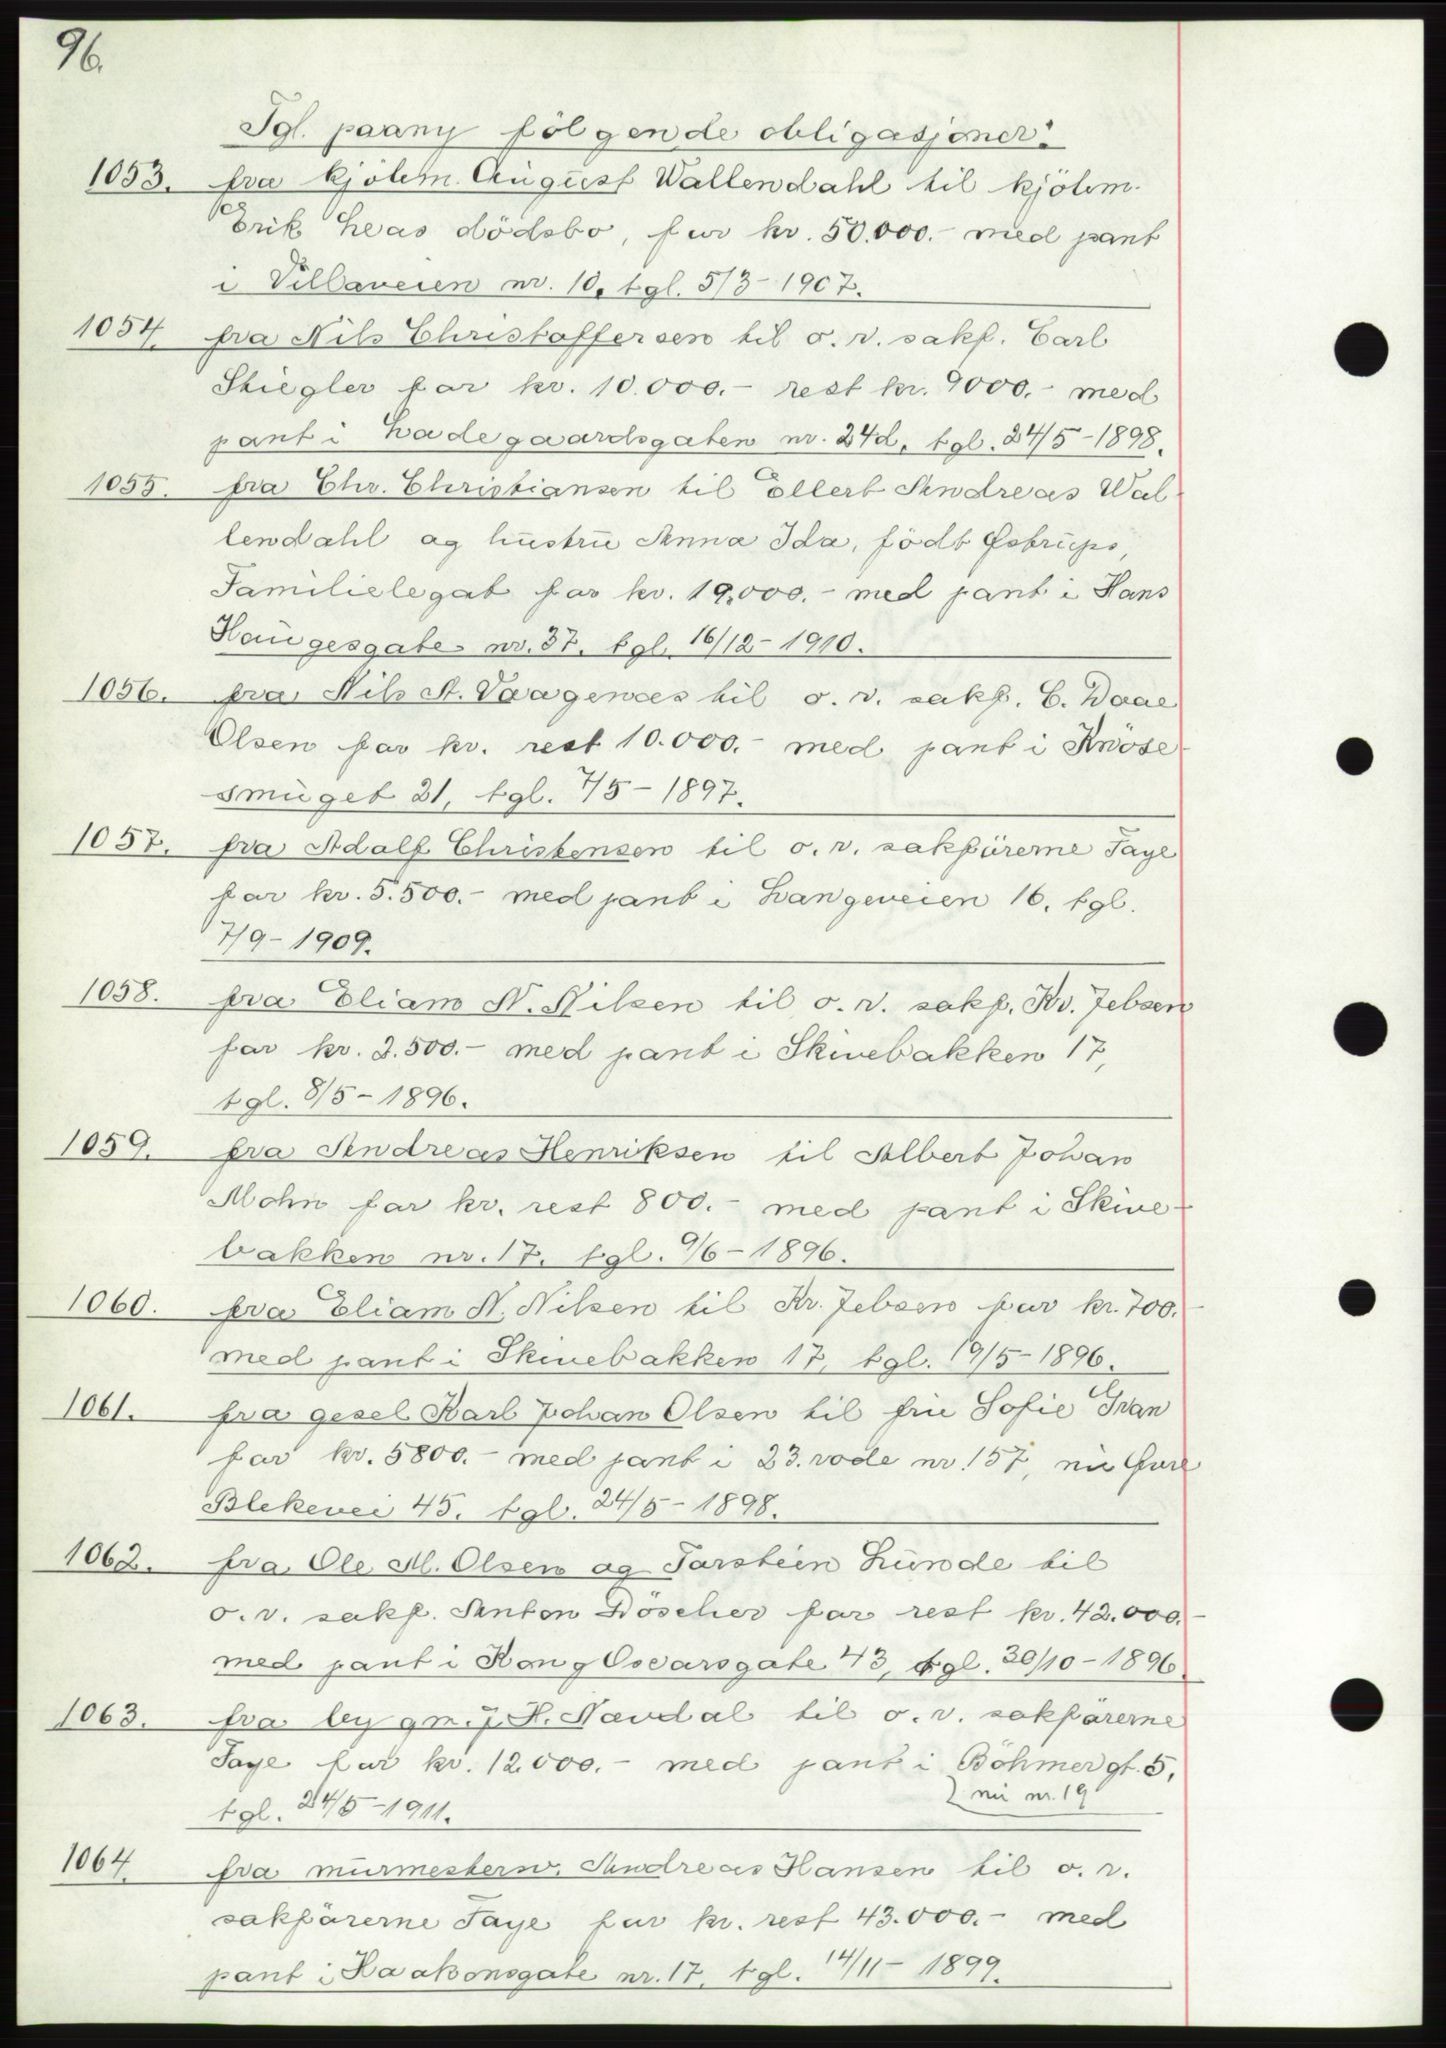 96.
Tgl. paany følgende obligasjoner:
1053. fra kjøbm. August Wallendahl til kjøbm.
Erik Leas dødsbo, for kr. 50.000.- med pant
i Villaveien nr. 10, tgl. 5/3-1907.
1054. fra Nils Christoffersen til o. r. sakf. Carl
Stiegler for kr. 10.000.- rest kr. 9000.- med
pant i Ladegaardsgaten nr. 24d, tgl. 24/5-1898.
1055. fra Chr. Christiansen til Ellert Andreas Wal-
lendahl og hustru Anna Ida, født Østrups,
Familielegat for kr. 19.000.- med pant i Hans
Haugesgate nr. 37, tgl. 16/12-1910.
1056. fra Nils A. Vaagenæs til o. r. sakf. C. Daae
Olsen for kr. rest 10.000.- med pant i Knøse-
smuget 21, tgl. 7/5-1897.
1057. fra Adolf Christensen til o. r. sakførerne Faye
for kr. 5.500.- med pant i Langeveien 16, tgl.
7/9-1909.
1058. fra Eliam N. Nilsen til o. r. sakf. Kr. Jebsen
for kr. 2.500.- med pant i Skivebakken 17,
tgl. 8/5-1896.
1059. fra Andreas Henriksen til Albert Johan
Mohn for kr. rest 800.- med pant i Skive-
bakken nr. 17. tgl. 9/6-1896.
1060. fra Eliam N. Nilsen til Kr. Jebsen for kr. 700.-
med pant i Skivebakken 17, tgl. 19/5-1896.
1061. fra gesel Karl Johan Olsen til fru Sofie Gran
for kr. 5800.- med pant i 23. rode nr. 157, nu Øvre
Blekevei 45. tgl. 24/5-1898.
1062. fra Ole M. Olsen og Torstein Lunde til
o. r. sakf. Anton Döscher for rest kr. 42.000.-
med pant i Kong Oscarsgate 43, tgl. 30/10-1896.
1063. fra bygm. J. H. Navdal til o. r. sakførerne
Faye for kr. 12.000.- med pant i Böhmergt. 5,
nu nr. 19
tgl. 24/5-1911.
1064. fra murmesterw. Andreas Hansen til o. r.
sakførerne Faye for kr. rest 43.000.- med
pant i Haakonsgate nr. 17, tgl. 14/11-1899.